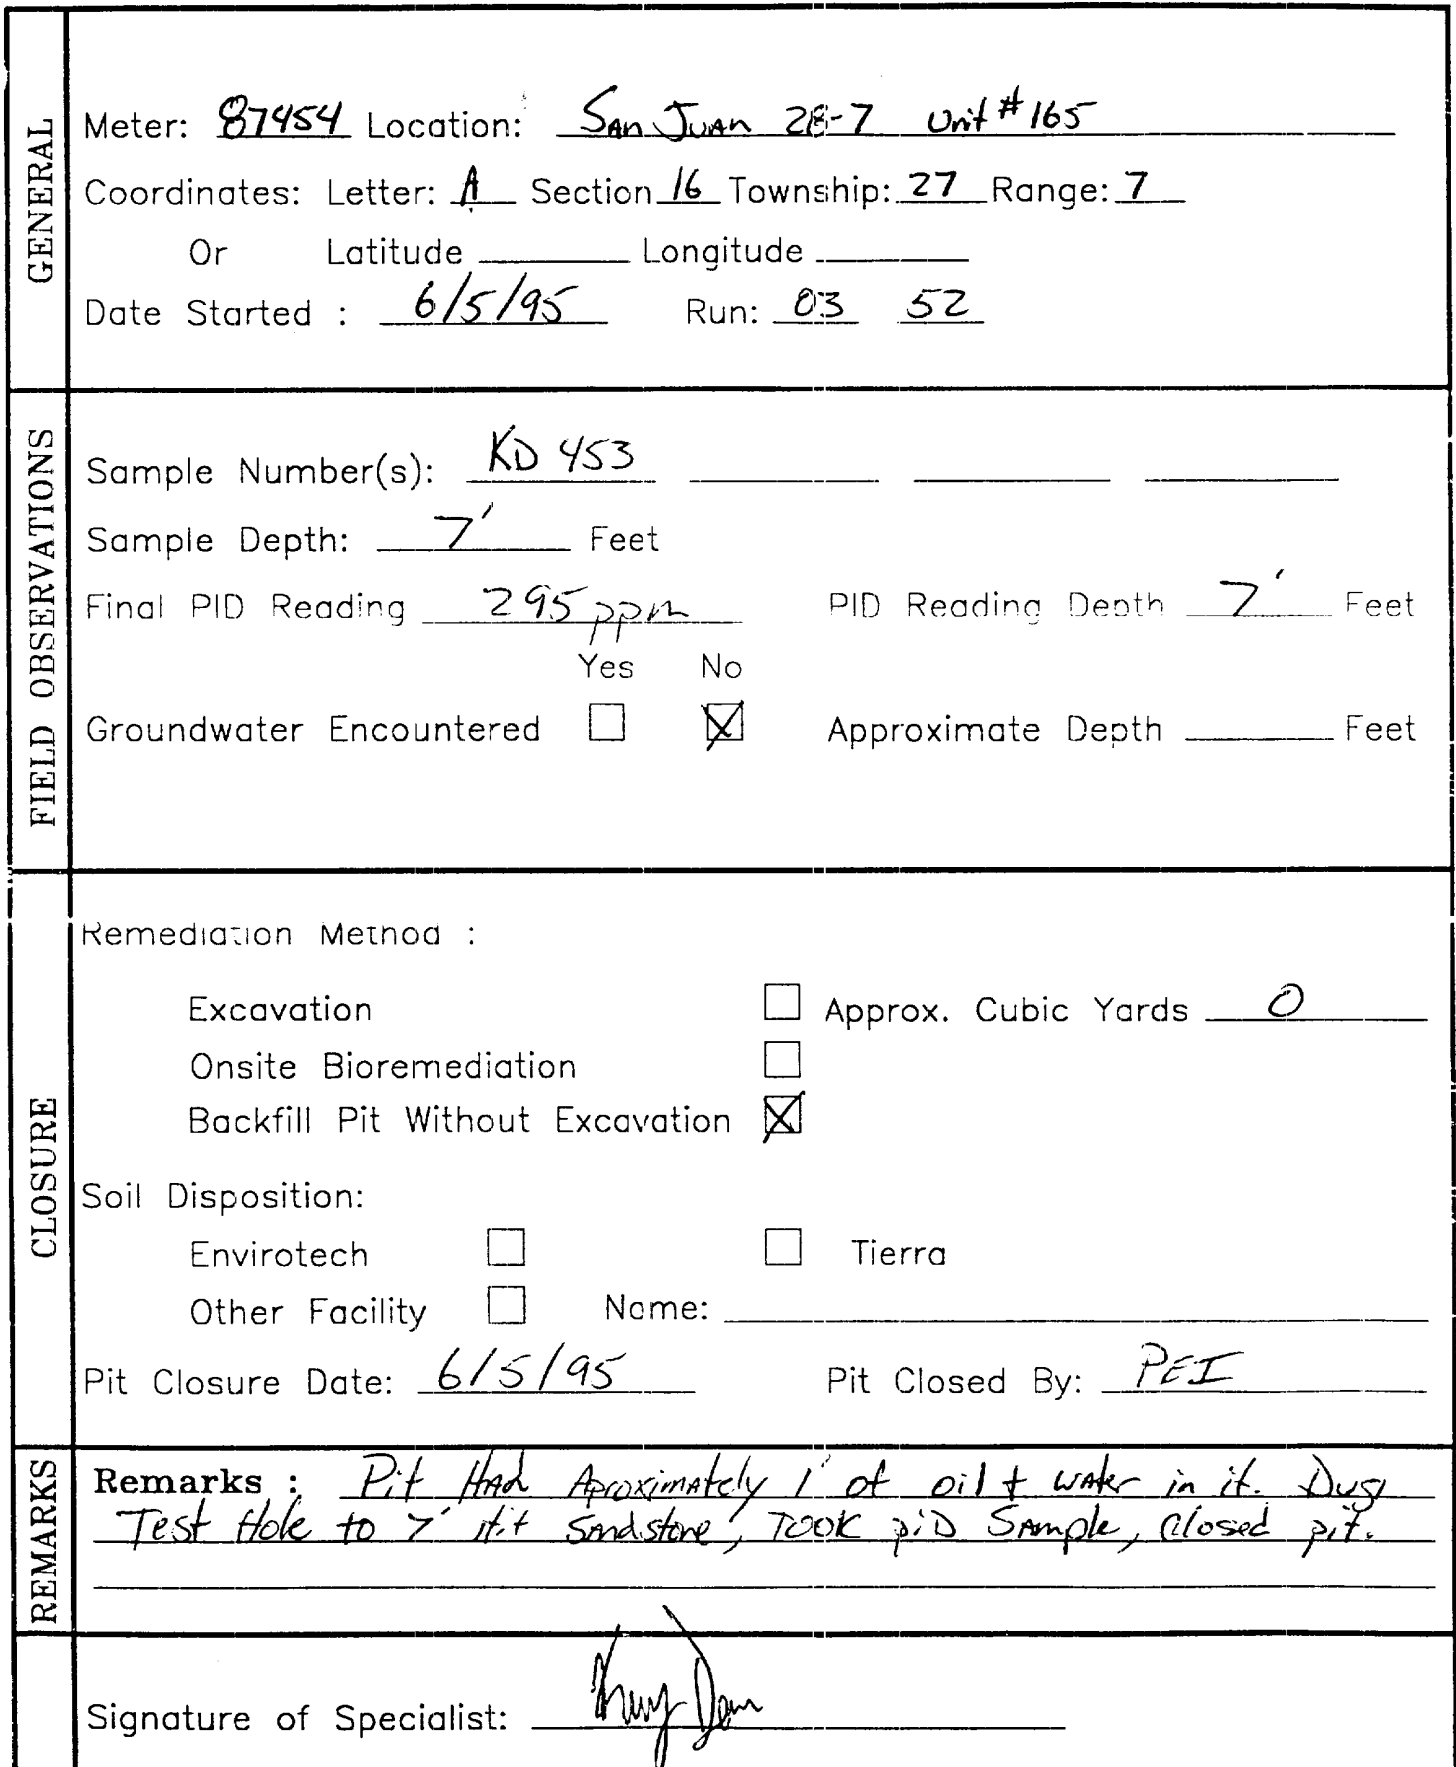 GENERAL
Meter: 87454 Location: San Juan 28-7 Unit #165
Coordinates: Letter: A Section 16 Township: 27 Range: 7
Or Latitude Longitude
Date Started : 6/5/95 Run: 03 52
FIELD OBSERVATIONS
Sample Number(s): KD 453
Sample Depth: 7' Feet
Final PID Reading 295 ppm PID Reading Depth 7' Feet
Yes No
Groundwater Encountered Approximate Depth Feet
CLOSURE
Remediation Method :
Excavation Approx. Cubic Yards 0
Onsite Bioremediation
Backfill Pit Without Excavation
Soil Disposition:
Envirotech Tierra
Other Facility Name:
Pit Closure Date: 6/5/95 Pit Closed By: PEI
REMARKS
Remarks : Pit Had Aproximately 1' of oil + water in it. Dug
Test Hole to 7' Hit Sandstone, TOOK PID Sample, Closed pit.
Signature of Specialist: